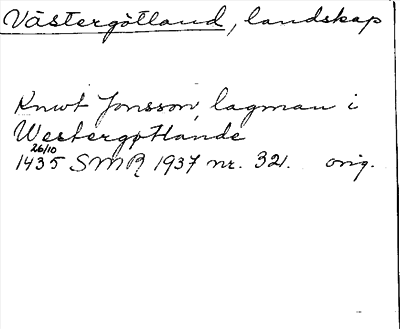 Västergötland, landskap
Knut Jonsson, lagman i
Westergøtlande
26/10
1435 SMR 1937 nr. 321. orig.